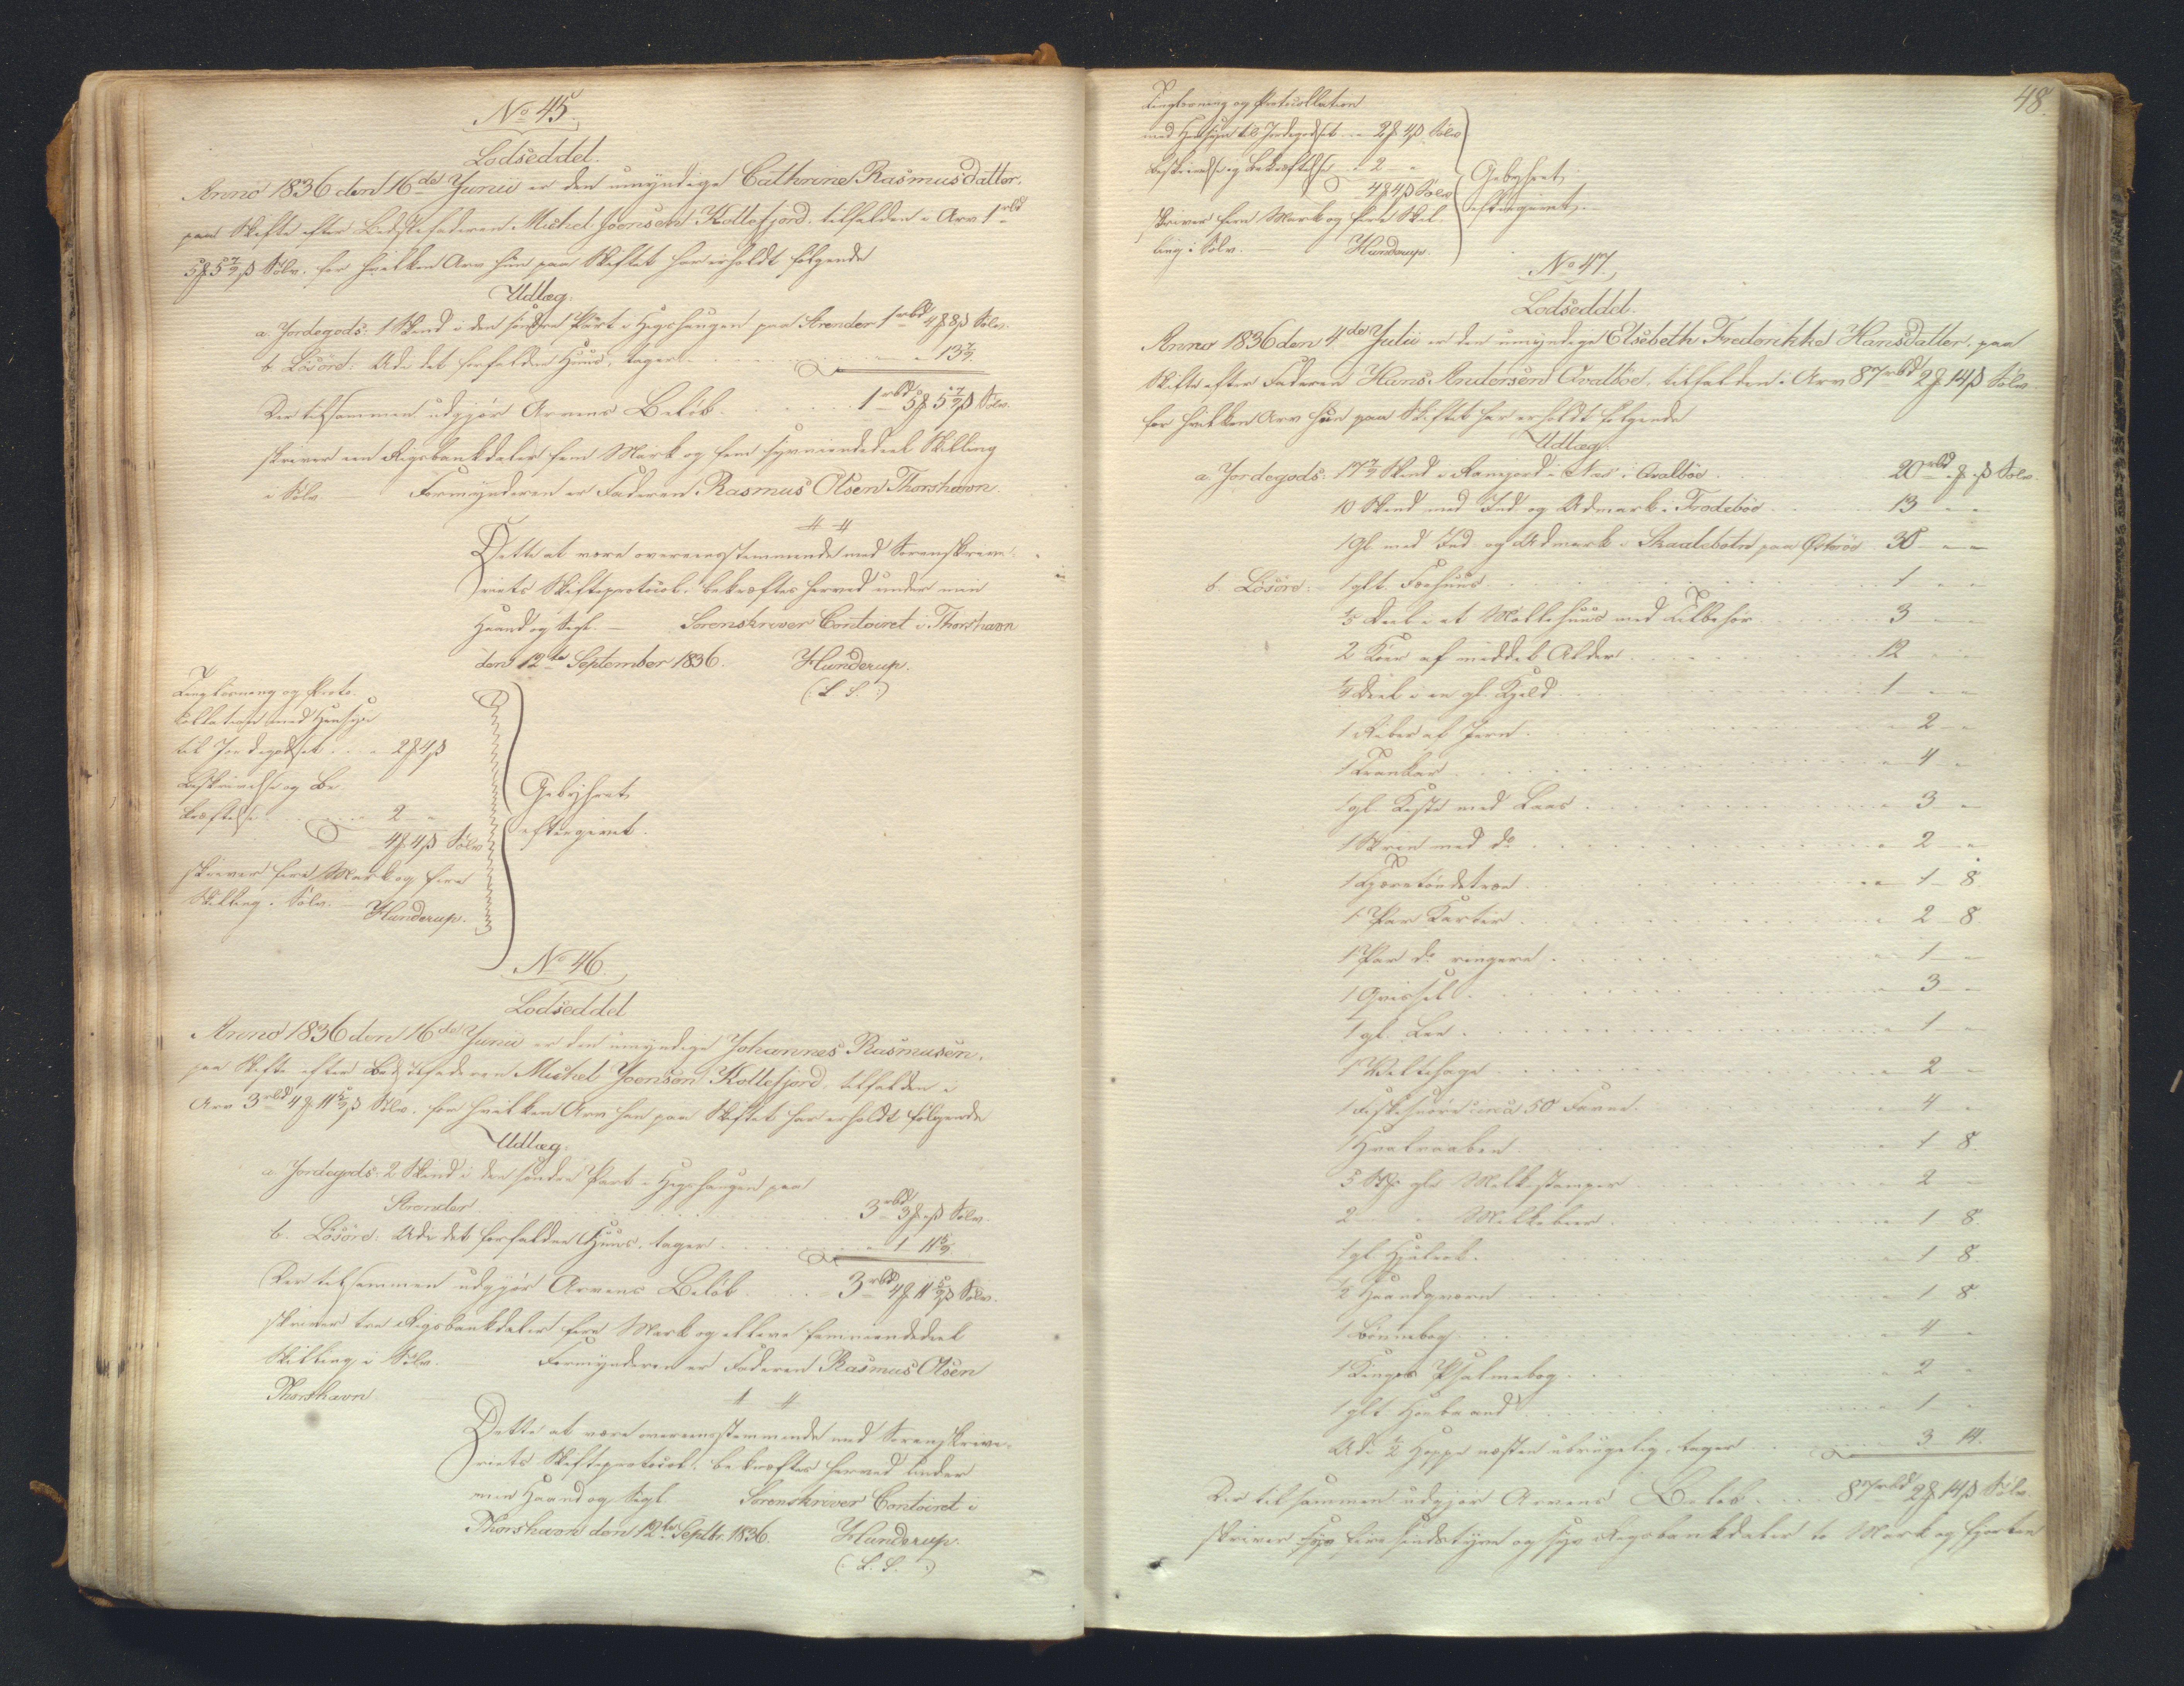 No 45.
Lodseddel.
Anno 1836 den 16de Junii er den umyndige Cathrine Rasmusdatter,
paa Skifte efter Bedstefaderen Michel Joensen Kollefjord, tilfalden i Arv 1 rbd
5 ₰ 5 7/9 β Sølv, for hvilken Arv hun paa Skiftet har erholdt følgende
Udlæg:
a. Jordegods: 1 Skind i den søndre Part i Hegshaugen paa Strender 1 rbd 4 ₰ 8 β Sølv.
b. Løsøre: Udi det forfaldne Huus, tager 13 7/9.
Der tilsammen udgjør Arvens Beløb 1 rbd 5 ₰ 5 7/9 β Sølv.
skriver een Rigsbankdaler fem Mark og fem syvniendedeel Skilling
i Sølv. Formynderen er Faderen Rasmus Olsen Thorshavn.
Dette at være overeensstemmende med Sorenskrive-
riets Skifteprotocol, bekræftes herved under min
Haand og Segl. Sorenskriver Contoiret i Thorshavn
den 12te September 1836. Hunderup.
(: L. S. :)
Tinglæsning og Proto-
kollation med Hensyn
til Jordegodset 2 ₰ 4 β
Beskrivelse og Be-
kræftelse 2 -
4 ₰ 4 β Sølv
skriver fire Mark og fire
Skilling i Sølv.
Hunderup.
Gebyhret
eftergivet.
No 46.
Lodseddel
Anno 1836 den 16de Junii er den umyndige Johannes Rasmusen,
paa Skifte efter Bedstefaderen Michel Joensen Kollefjord, tilfalden i
Arv 3 rbd 4 ₰ 11 5/9 β Sølv, for hvilken Arv han paa Skiftet har erholdt følgende
Udlæg:
a. Jordegods: 2 Skind i den søndre Part i Hegshaugen paa
Strender 3 rbd 3 ₰ - β Sølv.
b. Løsøre: Udi det forfaldne Huus, tager 1 11 5/9.
Der tilsammen udgjør Arvens Beløb 3 rbd 4 ₰ 11 5/9 β Sølv.
skriver tre Rigsbankdaler fire Mark og elleve femniendedeel
Skilling i Sølv. Formynderen er Faderen Rasmus Olsen
Thorshavn.
Dette at være overeensstemmende med Sorenskrive-
riets Skifteprotocol, bekræftes herved under
min Haand og Segl. Sorenskriver Contoiret i
Thorshavn den 12te Septbr. 1836. Hunderup.
(: L. S. :)
48.
Tinglæsning og Protocollation
med Hensyn til Jordegodset 2 ₰ 4 β Sølv
Beskrivelse og Bekræftelse 2 -
4 ₰ 4 β Sølv
skriver fire Mark og fire Skil-
ling i Sølv. Hunderup.
Gebyhret
eftergivet.
No 47.
Lodseddel.
Anno 1836 den 4de Julii er den umyndige Elsebeth Frederikke Hansdatter, paa
Skifte efter Faderen Hans Andersen Qvalbøe, tilfalden i Arv 87 rbd 2 ₰ 14 β Sølv.
for hvilken Arv hun paa Skiftet har erholdt følgende
Udlæg:
a. Jordegods: 17 7/9 Skind i Næs i Qvalbøe 20 rbd - ₰ - β Sølv.
10 Skind med Ind- og Udmark i Frodebøe 13 - -
1 Gl. med Ind- og Udmark i Skaalebotn paa Østerøe 30 - -
b. Løsøre: 1 glt. Foehuus 1 - -
1/5 Deel i et Møllehuus med Tilbehør 3 - -
2 Køer af middel Alder 12 - -
1/4 Deel i en gl. 1 - -
1 af Jern 2 -
1 Trankar 4 -
1 gl. Kiste med Laas 3 -
1 Skrin med do 2 -
1 1 - 8.
1 Par Karter 2 - 8.
1 Par do ringere 1 -
1 3 -
1 gl. Lee 1 -
1 2 -
1 Fiskesnøre circa 50 Favne 4 -
1 Hvalvaaben 1 8.
3 Stk. gle 2 -
2 1 8.
1 gl. 1 8.
1/2 Haandqværn 1 8.
1 Bønnebog 4 -
1 Kingos Psalmebog 2 -
1 glt. 1 -
Udi 1/2 Hoppe næsten ubrugelig, tager 3 14.
Der tilsammen udgjør Arvens Beløb 87 rbd 2 ₰ 14 β Sølv.
skriver syv fire sindstyve og syv Rigsbankdaler to Mark og fjorten